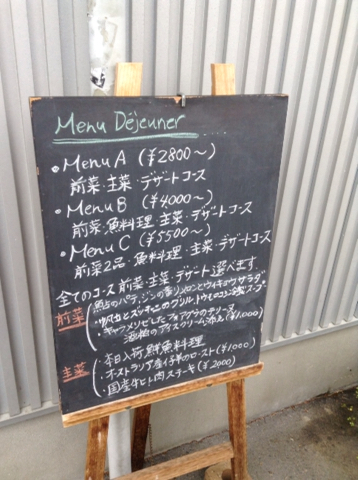 Menu Déjeuner
• Menu A (¥2800〜)
前菜・主菜・デザートコース
• Menu B (¥4,000〜)
前菜・魚料理・主菜・デザートコース
• Menu C (¥5500〜)
前菜2品・魚料理・主菜・デザートコース
全てのコース前菜・主菜・デザート選べます。
前菜
のパテ、ジンの香りメロンとウイキョウサラダ
とズッキーニのグリル、トウモロコシ冷製スープ
キャラメリゼしたフォアグラのテリーヌ
酒粕のアイスクリーム添え(¥1,000)
主菜
・本日入荷鮮魚料理
・オーストラリア産仔羊のロースト(¥1000)
・国産牛ヒレ肉ステーキ(¥2000)